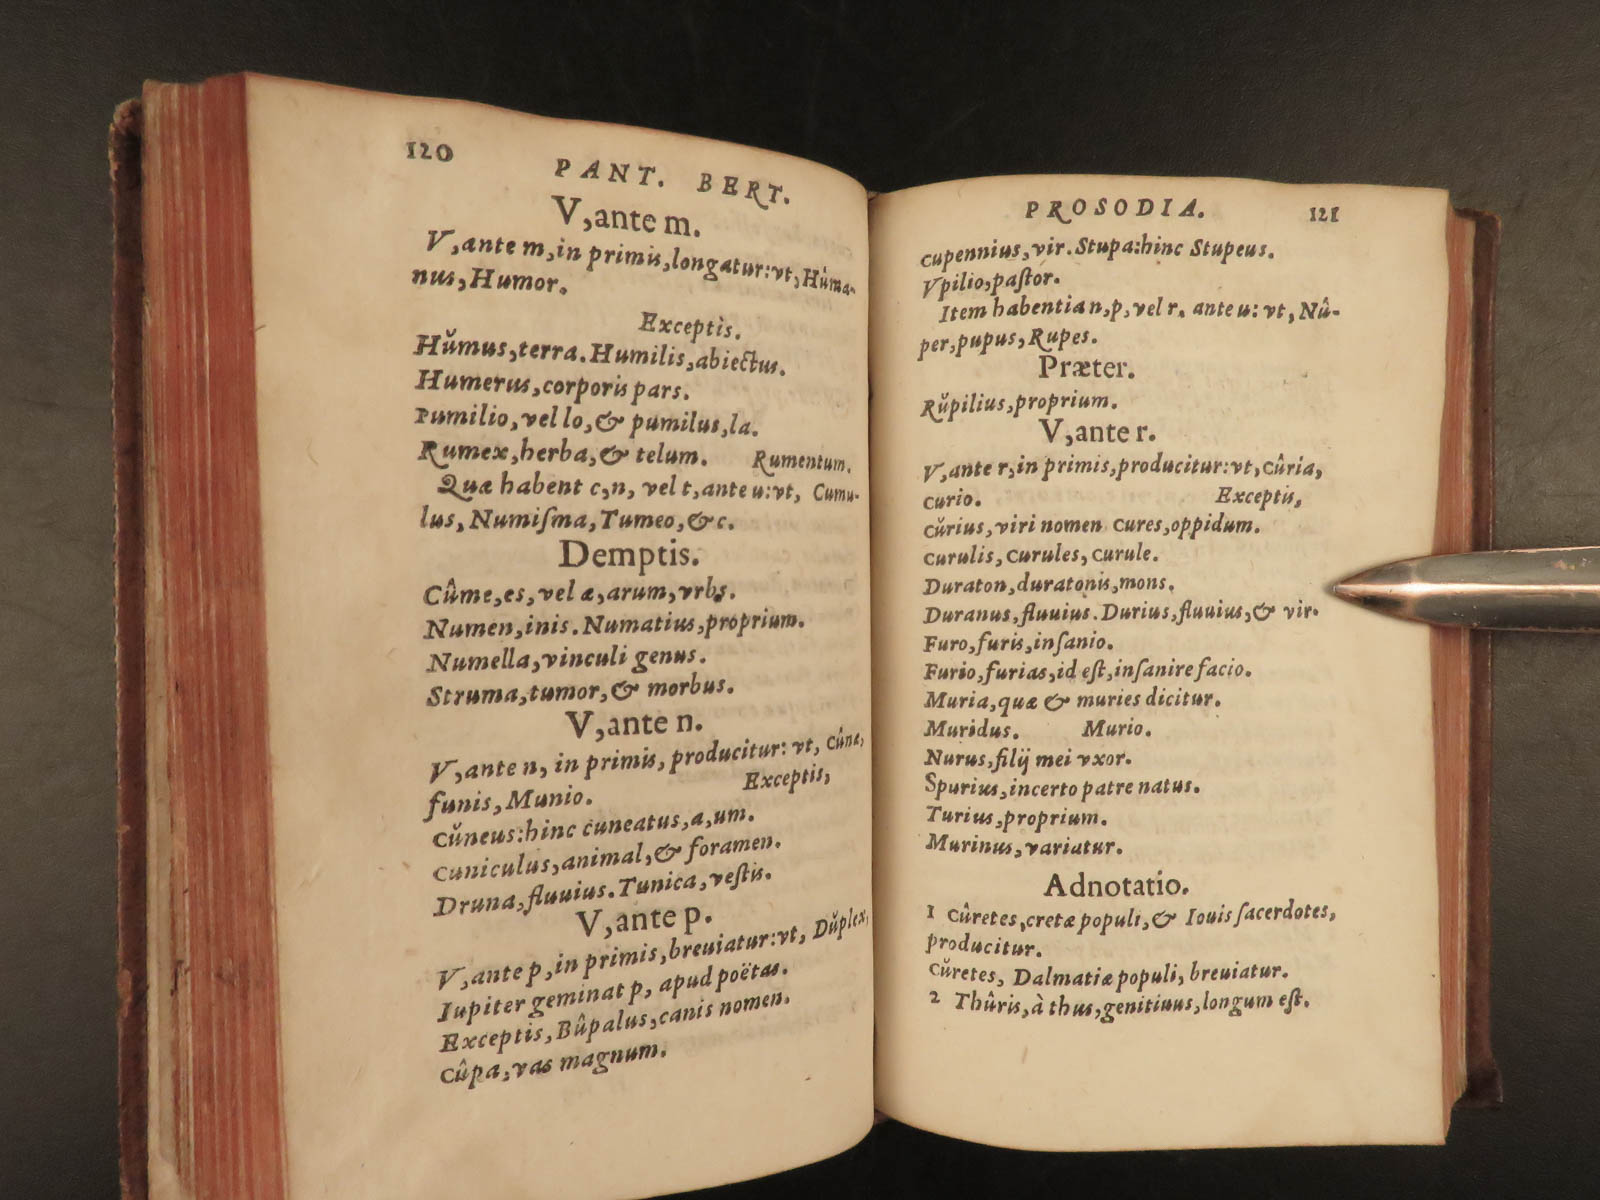 120
PANT. BERT.
V,ante m.
V,ante m,in primis,longatur:vt,Hûma-
nus,Humor.
Exceptis.
Hŭmus,terra.Humilis,abiectus.
Humerus,corporis pars.
Pumilio,vel lo,& pumilus,la.
Rumex,herba,& telum. Rumentum.
Quæ habent c,n, vel t,ante u:vt, Cumu-
lus,Numiſma,Tumeo,&c.
Demptis.
Cûme,es,vel æ,arum,vrbs.
Numen,inis.Numatius,proprium.
Numella,vinculi genus.
Struma,tumor,& morbus.
V,ante n.
V,ante n, in primis, producitur: vt, Cûne,
funis,Munio. Exceptis,
Cŭneus:hinc cuneatus,a,um.
Cuniculus,animal,& foramen.
Druna,fluuius.Tunica,veſtis.
V,ante p.
V,ante p,in primis,breuiatur:vt, Dŭplex,
Iupiter geminat p, apud poëtas.
Exceptis,Bûpalus,canis nomen.
Cûpa,vas magnum.
PROSODIA. 121
Cupennius,vir.Stupa:hinc Stupeus.
Vpilio,paſtor.
Item habentia n,p,vel r. ante u: vt, Nû-
per,pupus,Rupes.
Præter.
Rŭpilius,proprium.
V,ante r.
V,ante r,in primis,producitur:vt,Cûria,
Curio. Exceptis,
Cŭrius,viri nomen Cures,oppidum.
Curulis,Curules,Curule.
Duraton,duratonis,mons.
Duranus,fluuius.Durius,fluuius,& vir.
Furo,furis,inſanio.
Furio,furias,id eſt,inſanire facio.
Muria,quæ & muries dicitur.
Muridus. Murio.
Nurus,filij mei vxor.
Spurius,incerto patre natus.
Turius,proprium.
Murinus,variatur.
Adnotatio.
1 Cûretes,cretæ populi,& Iouis ſacerdotes,
producitur.
Cŭretes, Dalmatiæ populi, breuiatur.
2 Thûris,à thus,genitiuus,longum eſt.